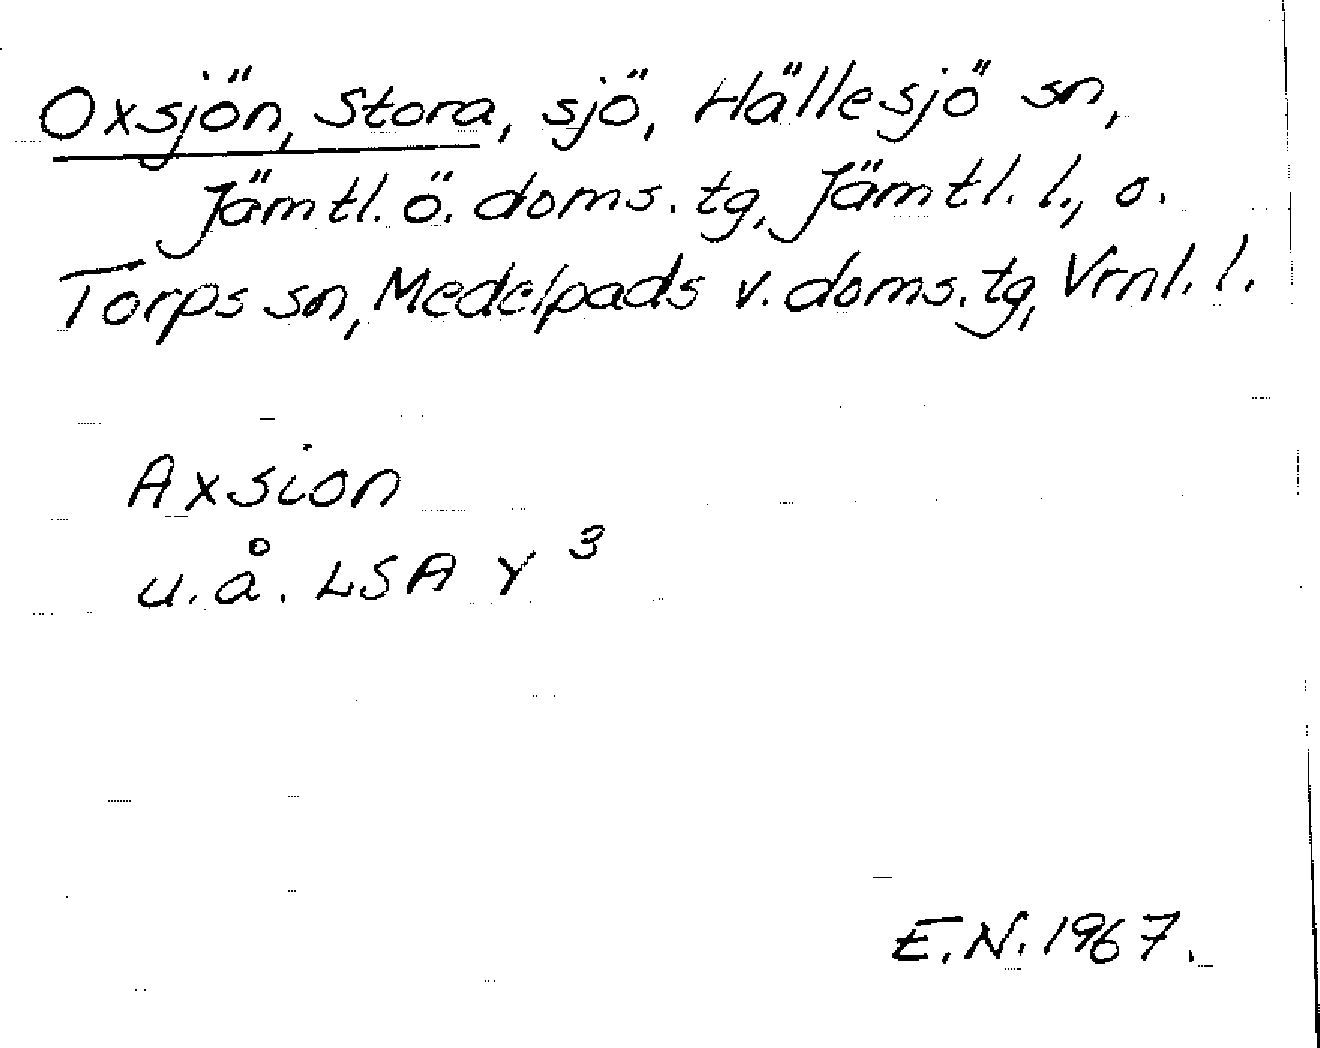 Oxsjön, Stora, sjö, Hällesjö sn,
Jämtl. ö. doms. tg, Jämtl. l., o.
Torps sn, Medelpads v. doms. tg, Vrnl. l.
Axsion
u. å. LSA Y 3
E. N. 1967.